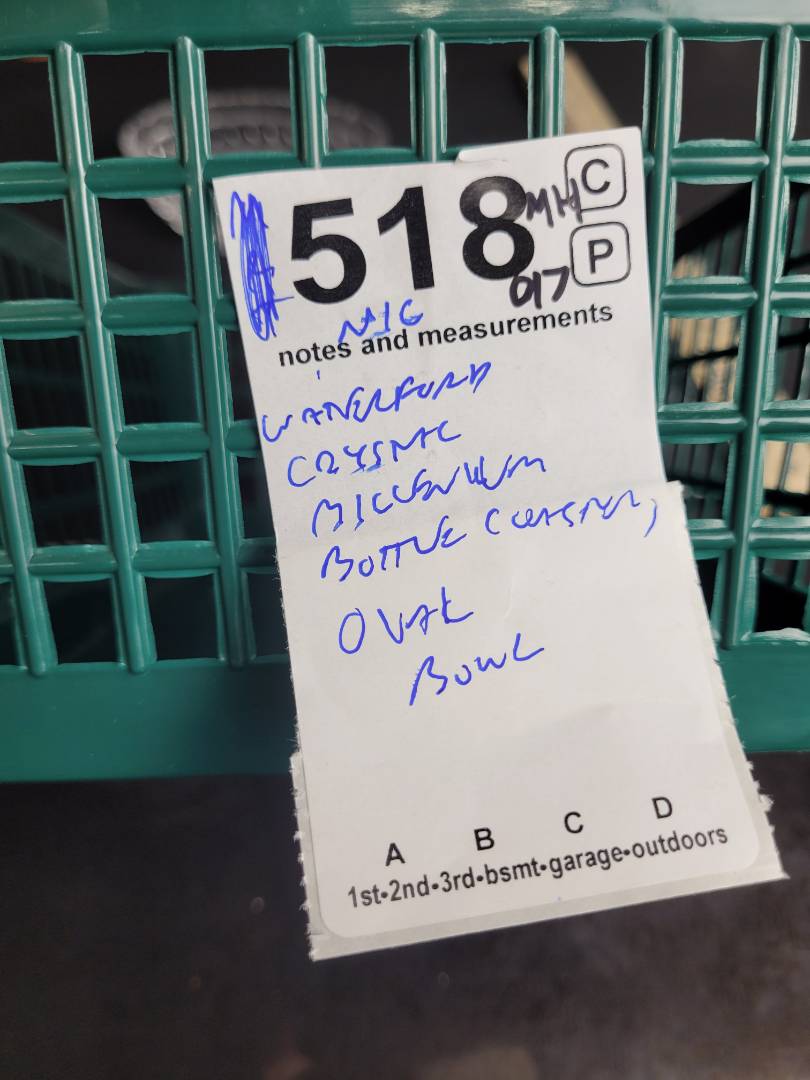 518 MH C
017 P
NIC
notes and measurements
WATERFORD
CRYSTAL
MILLENIUM
BOTTLE COASTER,
OVAL
BOWL
A B C D
1st•2nd•3rd•bsmt•garage•outdoors